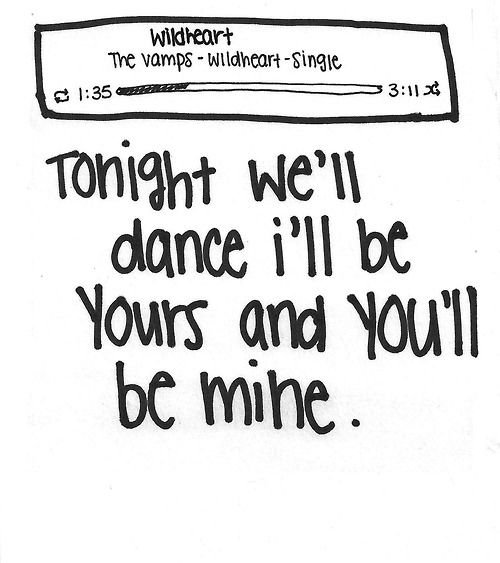 Wildheart
The vamps - Wildheart - Single
1:35 3:11
Tonight we'll
dance i'll be
Yours and you'll
be mine.